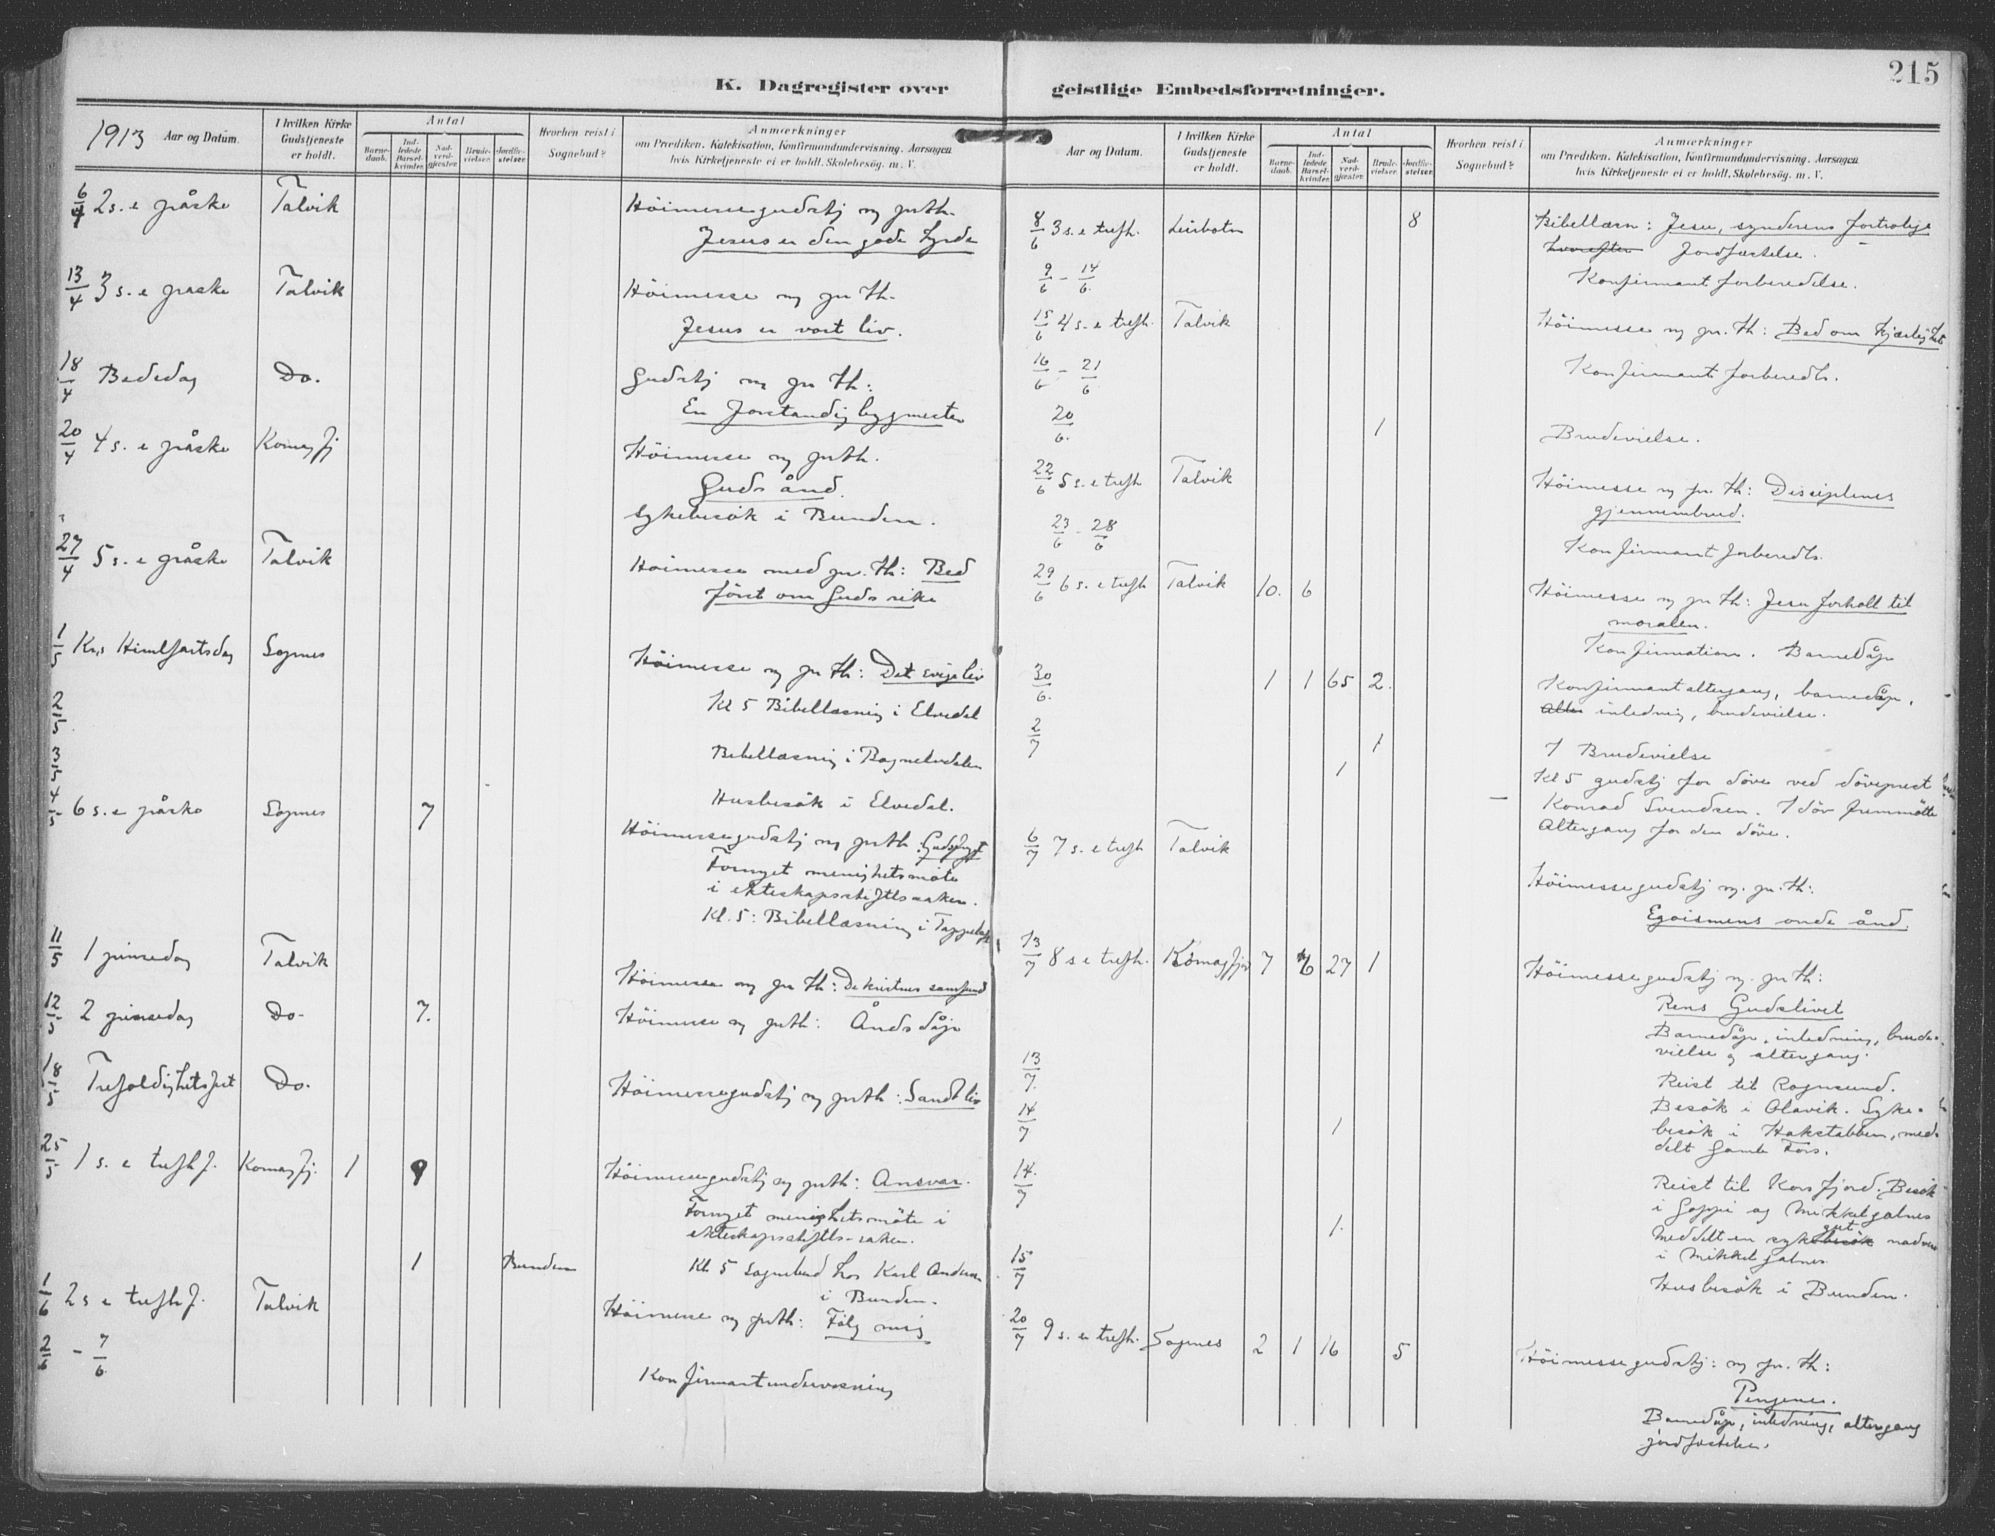 K. Dagregister over geistlige Embedsforretninger.
215
1913 Aar og Datum.
I hvilken Kirke Gudstjeneste er holdt.
Antal
Barnedaab.
Indledede Barselkvinder.
Nadverdgjæster.
Brudevielser.
Jordfæstelser.
Hvorhen reist i Sognebud?
Anmærkninger
om Prædiken. Katekisation, Konfirmandundervisning. Aarsagen
hvis Kirketjeneste ei er holdt. Skolebesøg. m. V.
6/4 2 s. e påske Talvik Höimessegudstj og pr th.
Jesus er den gode hyrde
13/4 3 s. e påske Talvik Höimesse og pr th.
Jesus er vort liv.
18/4 Bededag Do. Gudstj og pr th:
En forstandig bygmester
20/4 4 s. e påske Komagfj Höimesse og pr th.
Guds ånd.
Sykebesök i Bunden.
27/4 5 s. e påske Talvik Höimesse med pr. th: Bed
först om Guds rike
1/5 Kr. Himlfartsdag Sopnes Höimesse og pr th: Det evige liv
Kl 5 Bibellæsning i Elvedal
2/5
Bibellæsning i Bognelvdalen
3/5
Husbesök i Elvedal.
4/5 6 s. e påske Sopnes 7 Höimessegudstj og pr th. Gudsfrygt
Fornyet menighetsmöte
i ekteskapsstiftls saken.
Kl. 5: Bibellæsning i
11/5 1 pinsedag Talvik Höimesse og pr th: De kristnes samfund
12/5 2 pinsedag Do. 7. Höimesse og pr th: Ånds dåp
18/5 Trefoldighetsfest Do. Höimessegudstj og pr th: Sandt liv
25/5 1 s. e trefh f. Komagfj. 1 9 Höimessegudstj og pr th: Ansvar.
Fornyet menighetsmöte i
ekteskapsstiftls-saken.
1 Bunden Kl. 5 Sognebud hos Karl Andersen
i Bunden.
1/6 2 s e trefh f. Talvik Höimesse og pr th: Fölg mig
2/6 - 7/6 Konfirmantundervisning
Aar og Datum.
I hvilken Kirke Gudstjeneste er holdt.
Antal
Barnedaab.
Indledede Barselkvinder.
Nadverdgjæster.
Brudevielser.
Jordfæstelser.
Hvorhen reist i Sognebud?
Anmærkninger
om Prædiken. Katekisation, Konfirmandundervisning. Aarsagen
hvis Kirketjeneste ei er holdt. Skolebesög. m. V.
8/6 3 s. e trefh. Leirbotn 8 Bibellæsn: Jesu, synderens fortrolige
hvorefter Jordfæstelse.
9/6 - 14/6 Konfirmant forberedelse.
15/6 4 s. e trefh. Talvik Höimesse og pr. th: Bed om kjærlighet
16/6 - 21/6 Konfirmant forberedls.
20/6. 1 Brudevielse.
22/6 5 s. e trefh Talvik Höimesse og pr. th: Disciplenes
gjennembrud.
23/6 - 28/6 Konfirmant forberedls.
29/6 6 s. e trefh Talvik 10. 6 Höimesse og pr th: Jesu forhold til
moralen.
Konfirmation. Barnedåp
30/6. 1 1 65 2. Konfirmantaltergang, barnedåp,
Alter inledning, brudevielse.
2/7 1 1 Brudevielse
1 Kl 5 gudstj for döve ved döveprest
Konrad Svendsen. 1 döv fremmötte
Altergang for den döve.
6/7 7 s. e trefh Talvik Höimessegudstj og. pr. th:
Egoismens onde ånd.
13/7 8 s e trefh. Komagfjord 7 6 27 1 Höimessegudstj og. pr th:
Rens Gudslivet
Barnedåp, inledning, brude-
vielse og altergang.
13/7. Reist til Rognsund.
14/7 1 Besök i Olavik. Syke-
besök i Hakstabben, med-
delt gamle Fors.
14./7 Reist til Korsfjord. Besök
i Goppi og Mikkelsalnes
1. Meddelt en syk gut nadver
i Mikkelsalnes
15/7 Husbesök i Bunden.
20/7 9 s. e trefh. Sopnes 2 1 16 5 Höimessegudstj: og pr. th:
Pengenes.
Barnedåp, inledning, altergang
jordfæstelse.